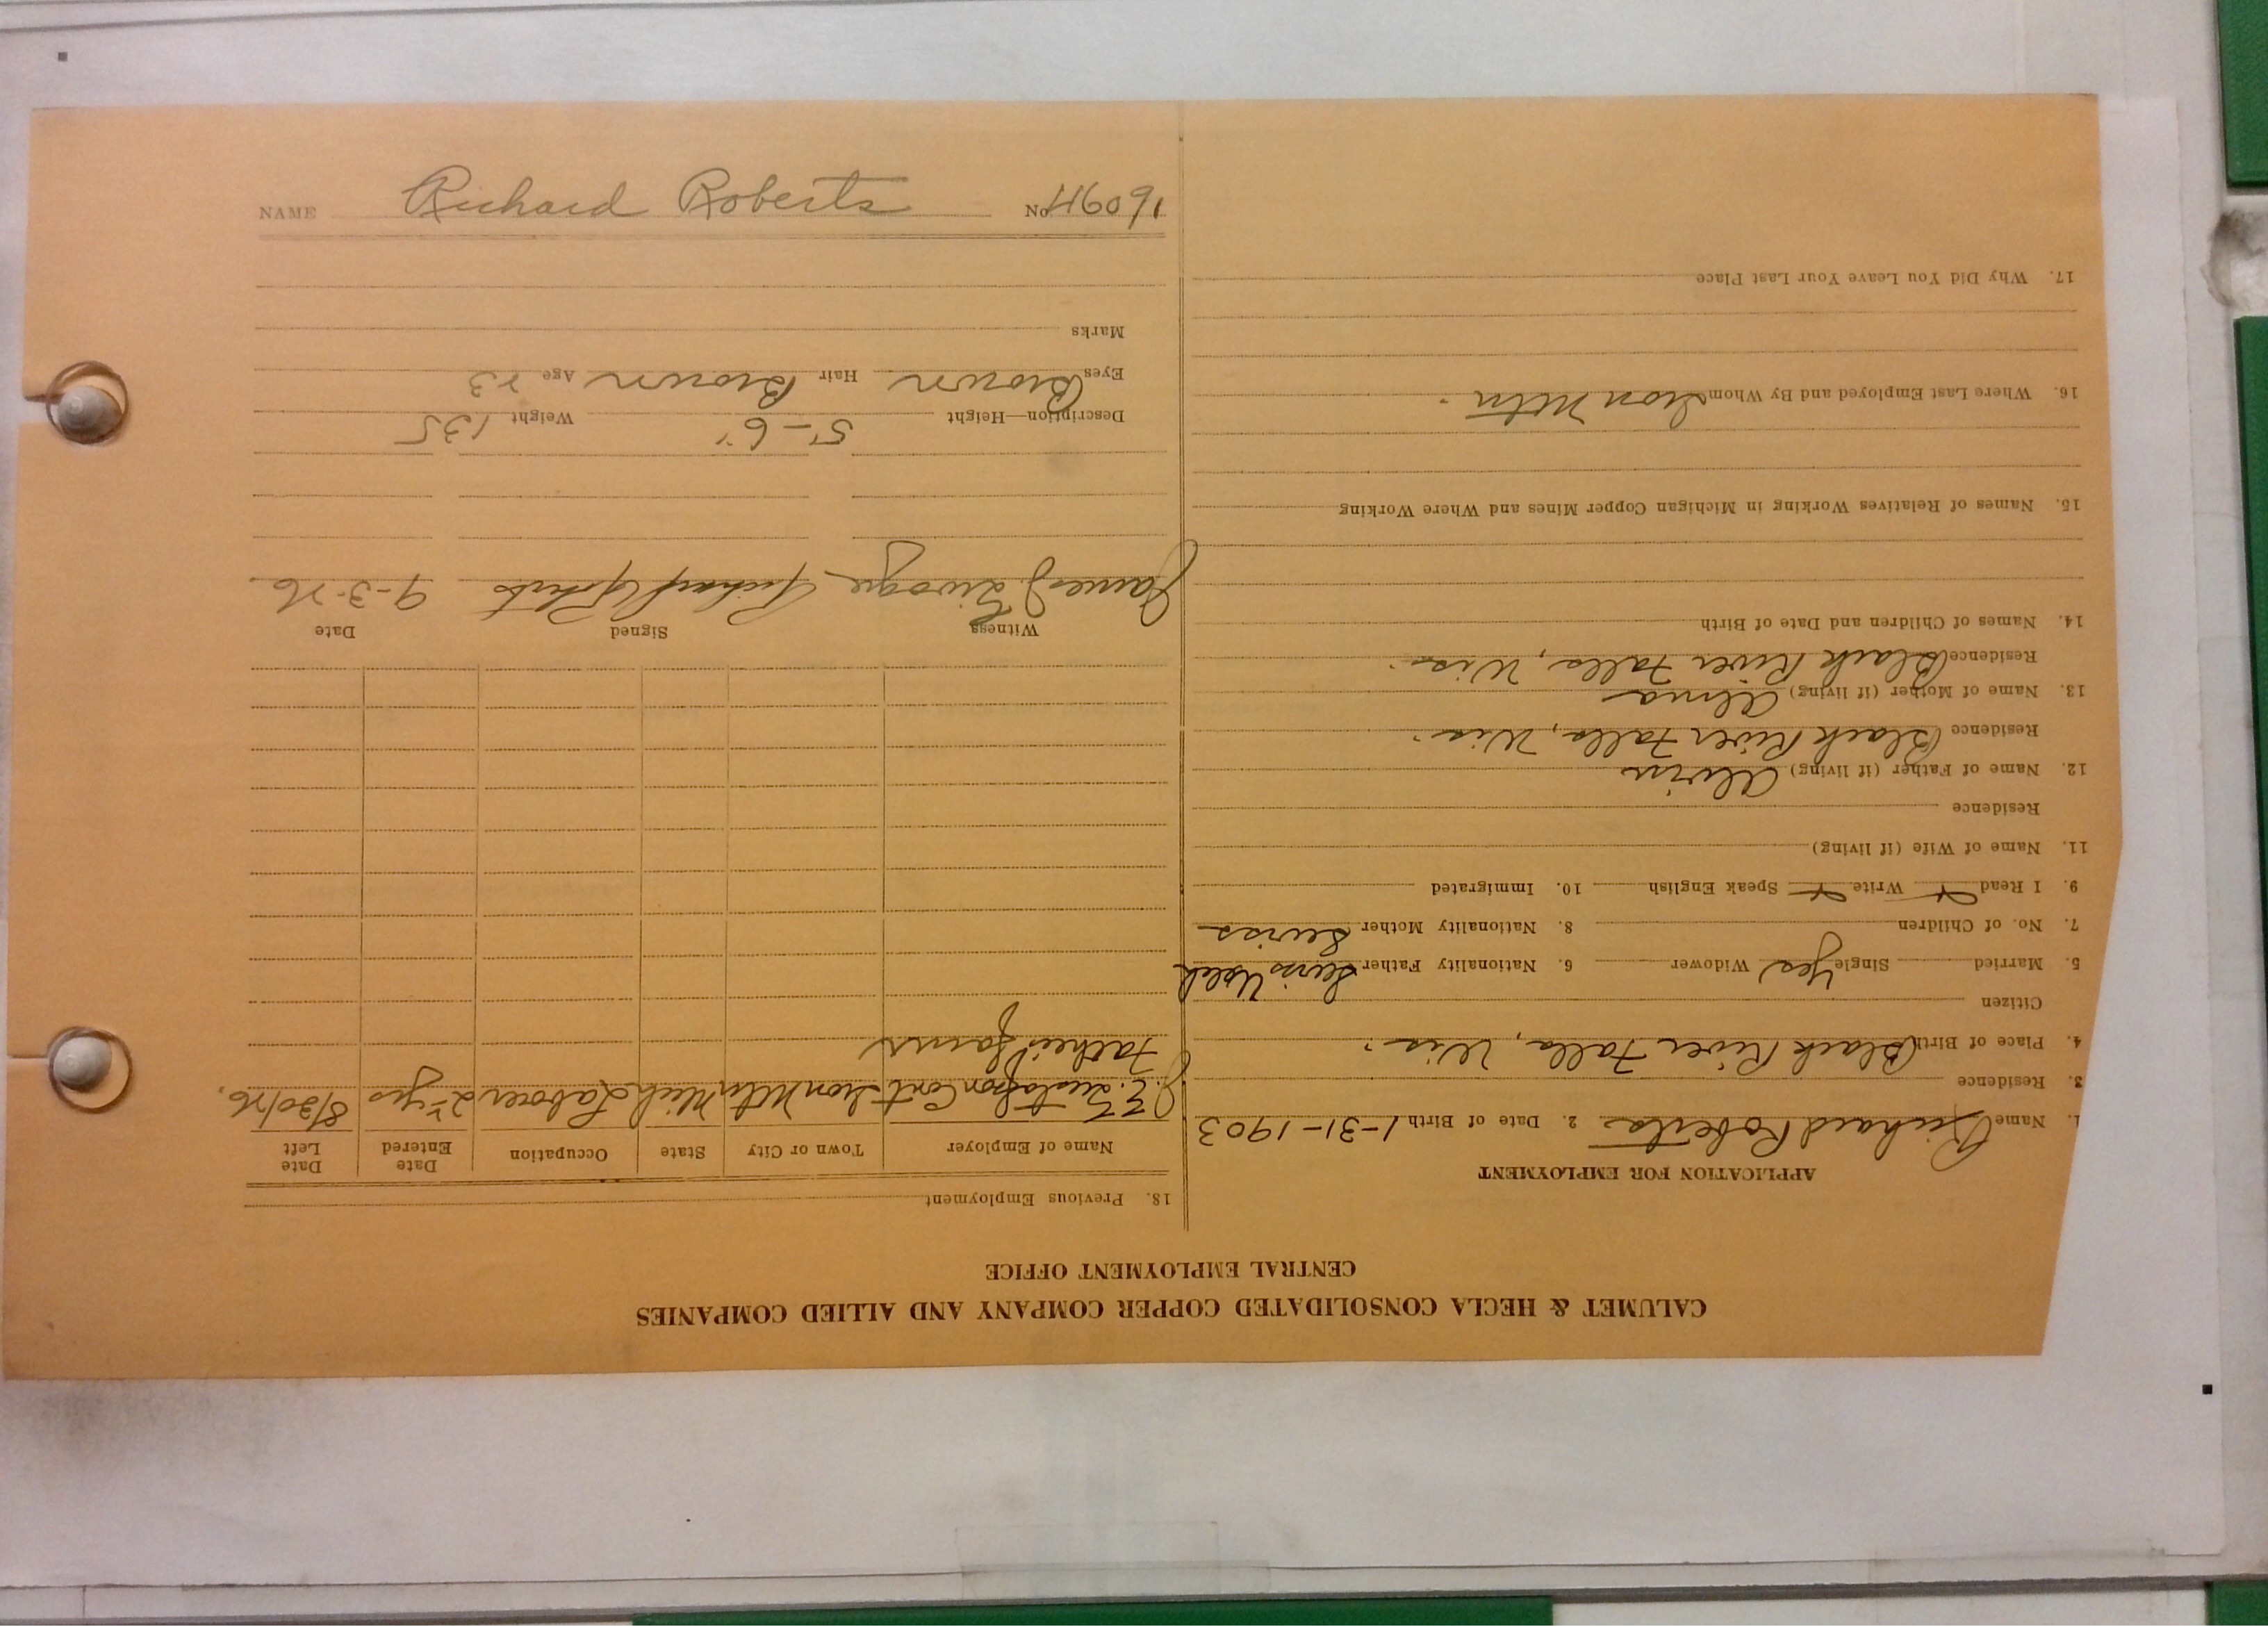 CALUMET & HECLA CONSOLIDATED COPPER COMPANY AND ALLIED COMPANIES
CENTRAL EMPLOYMENT OFFICE
APPLICATION FOR EMPLOYMENT
1. Name Richard Roberts 2. Date of Birth 1-31-1903
3. Residence
4. Place of Birth Black River Falls, Wis.
Citizen
5. Married Single Yes Widower 6. Nationality Father Swis
7. No. of Children 8. Nationality Mother Swiss
9. I Read Write Speak English 10. Immigrated
11. Name of Wife (if living)
Residence
12. Name of Father (if living) Alvin
Residence Black River Falls, Wis.
13. Name of Mother (if living) Alma
Residence Black River Falls, Wis.
14. Names of Children and Date of Birth
15. Names of Relatives Working in Michigan Copper Mines and Where Working
16. Where Last Employed and By Whom Iron Mtn.
17. Why Did You Leave Your Last Place
18. Previous Employment
Name of Employer Town or City State Occupation Date Entered Date Left
J. E. Gustafson Cont Iron Mtn Mich Laborer 2 yrs 8/30/26.
Father's farm
Witness Signed Date
James J. Richard Roberts 9-3-26
Description—Height 5'-6" Weight 135
Eyes Brown Hair Brown Age 23
Marks
NAME Richard Roberts No. 46091